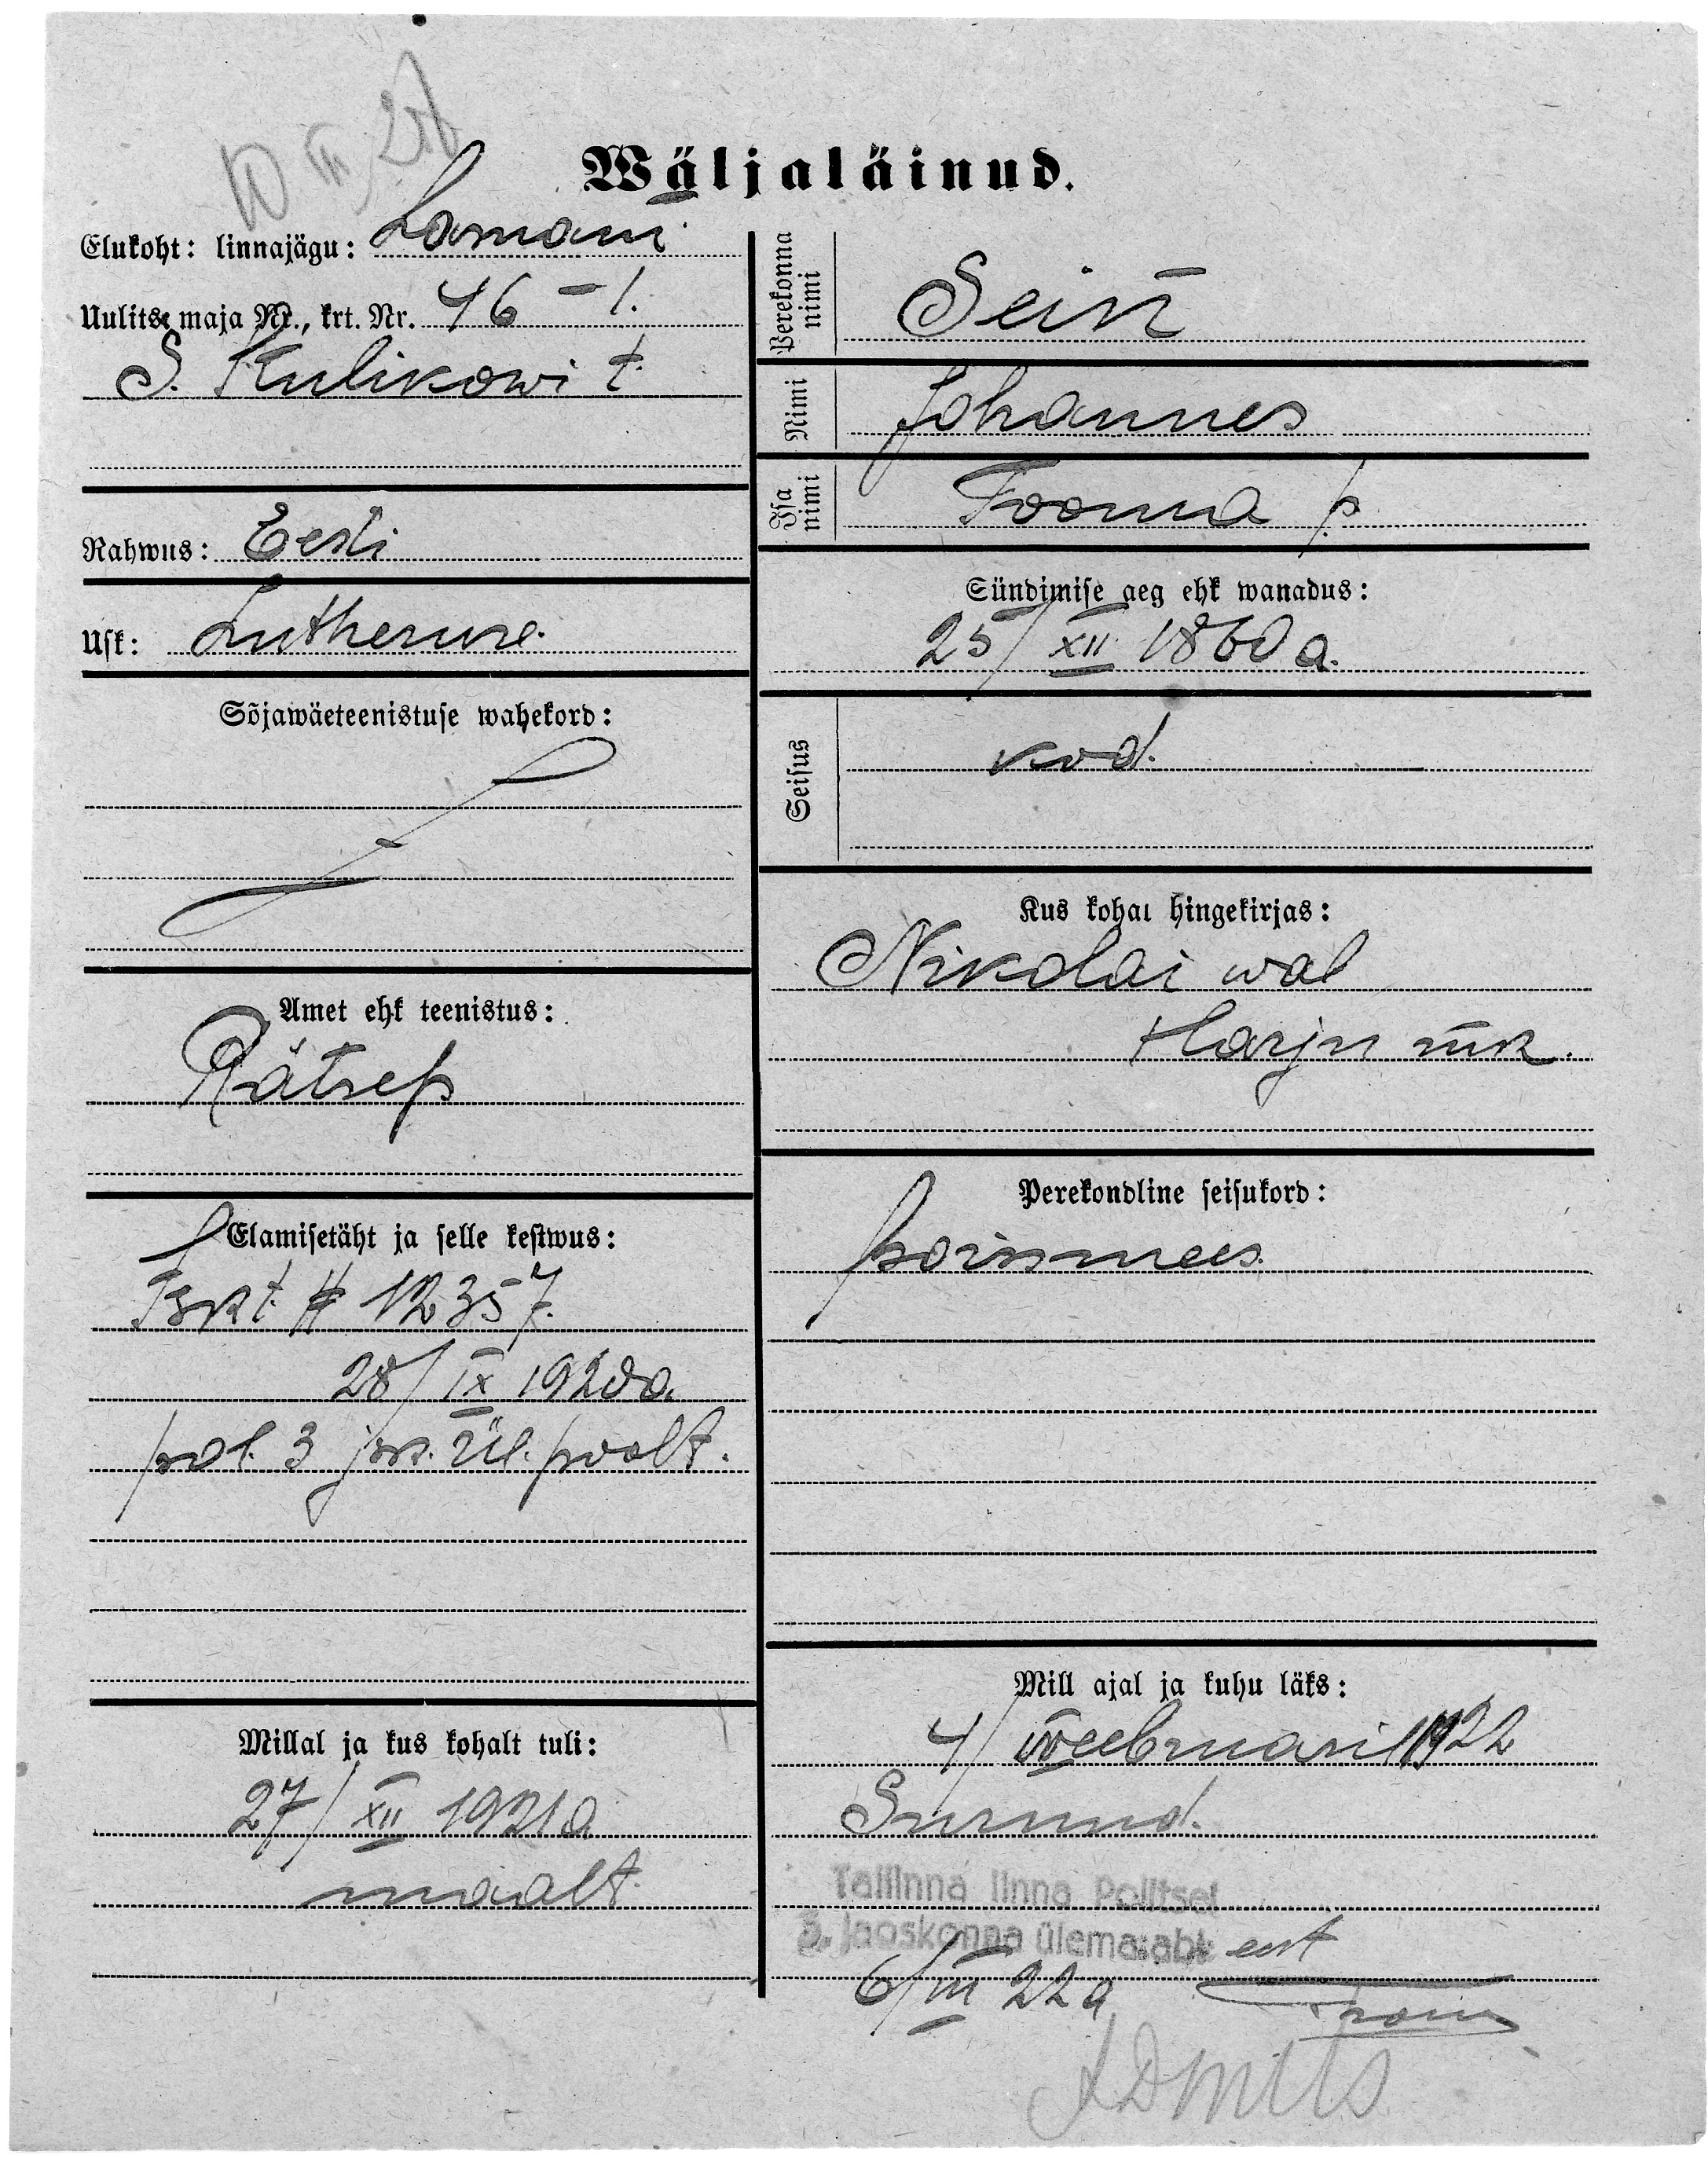 10 III 22
Wäljaläinud.
Elukoht: linnajägu: Lasnam.
Uulits, maja Nr., krt. Nr. 46 – 1.
S. Kulikowi t.
Rahwus: Eesti
Usk: Lutheruse.
Sõjawäeteenistuse wahekord:
Amet ehk teenistus:
Rätsep
Elamisetäht ja selle kestwus:
Iskt # 12357.
28/IX 1920 a.
pol. 3 jsk. ül. poolt.
Millal ja kus kohalt tuli:
27/XII 1921 a
maalt.
Perekonna nimi
Sein
Nimi
Johannes
Isa nimi
Tooma p.
Sündimise aeg ehk wanadus:
25/XII 1860 a.
Seisus
kod.
Kus kohal hingekirjas:
Nikolai wal
Harju mk.
Perekondline seisukord:
poissmees.
Mill ajal ja kuhu läks:
4/ weebruaril 1922
Surnud.
Tallinna linna Politsei
3. jaoskonna ülema abi eest
6/III 22 a